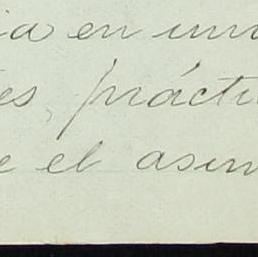 ia en un
es, prácti
e el asun